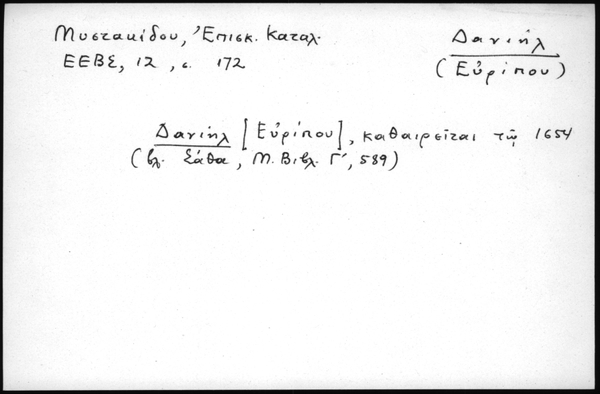 Μυστακίδου, Ἐπισκ. Καταλ.
ΕΕΒΣ, 12, σ. 172
Δανιήλ
(Εὐρίπου)
Δανιήλ [Εὐρίπου], καθαιρεῖται τῷ 1654
(βλ. Σάθα, Μ. Βιβλ. Γ', 589)